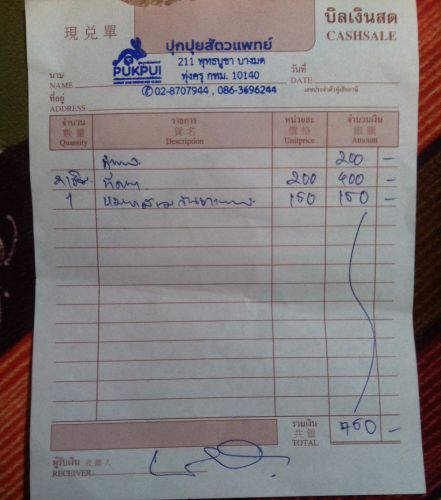 現兌單
บิลเงินสด
CASHSALE
PUKPUI
ปุกปุยสัตวแพทย์
211 พุทธบูชา บางมด
ทุ่งครุ กทม. 10140
✆ 02-8707944 , 086-3696244
นาม
NAME
วันที่
DATE
ที่อยู่
ADDRESS
เลขประจำตัวผู้เสียภาษี
จำนวน รายการ หน่วยละ จำนวนเงิน
數量 貨名 價格 銀額
Quantity Description Unitprice Amount
200 -
200 400 -
1 150 150 -
รวมเงิน
共銀
TOTAL 750 -
ผู้รับเงิน 收銀人
RECEIVER